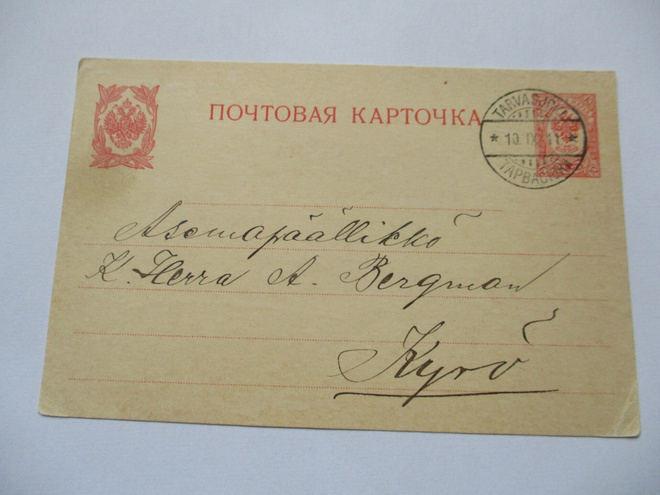 ПОЧТОВАЯ КАРТОЧКА
TARVASJOKI
* 10.IX.11 *
Asemapäällikkö
K. Herra A. Bergman
Kyrö